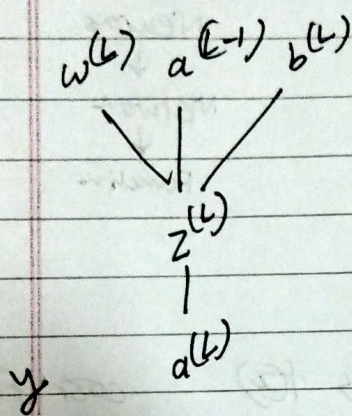 w^(L) a^(L-1) b^(L)
z^(L)
a^(L)
y